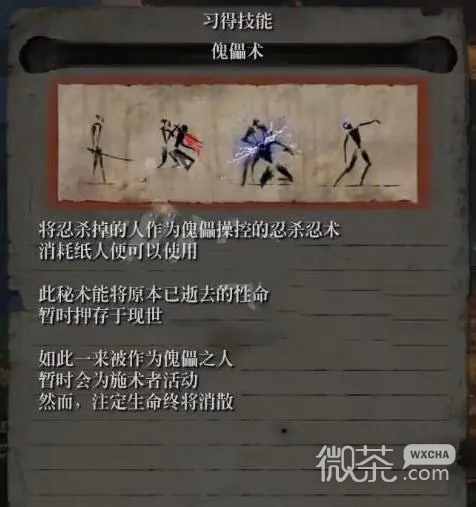 习得技能
傀儡术
将忍杀掉的人作为傀儡操控的忍杀忍术
消耗纸人便可以使用
此秘术能将原本已逝去的性命
暂时押存于现世
如此一来被作为傀儡之人
暂时会为施术者活动
然而，注定生命终将消散
微茶 WXCHA
.com